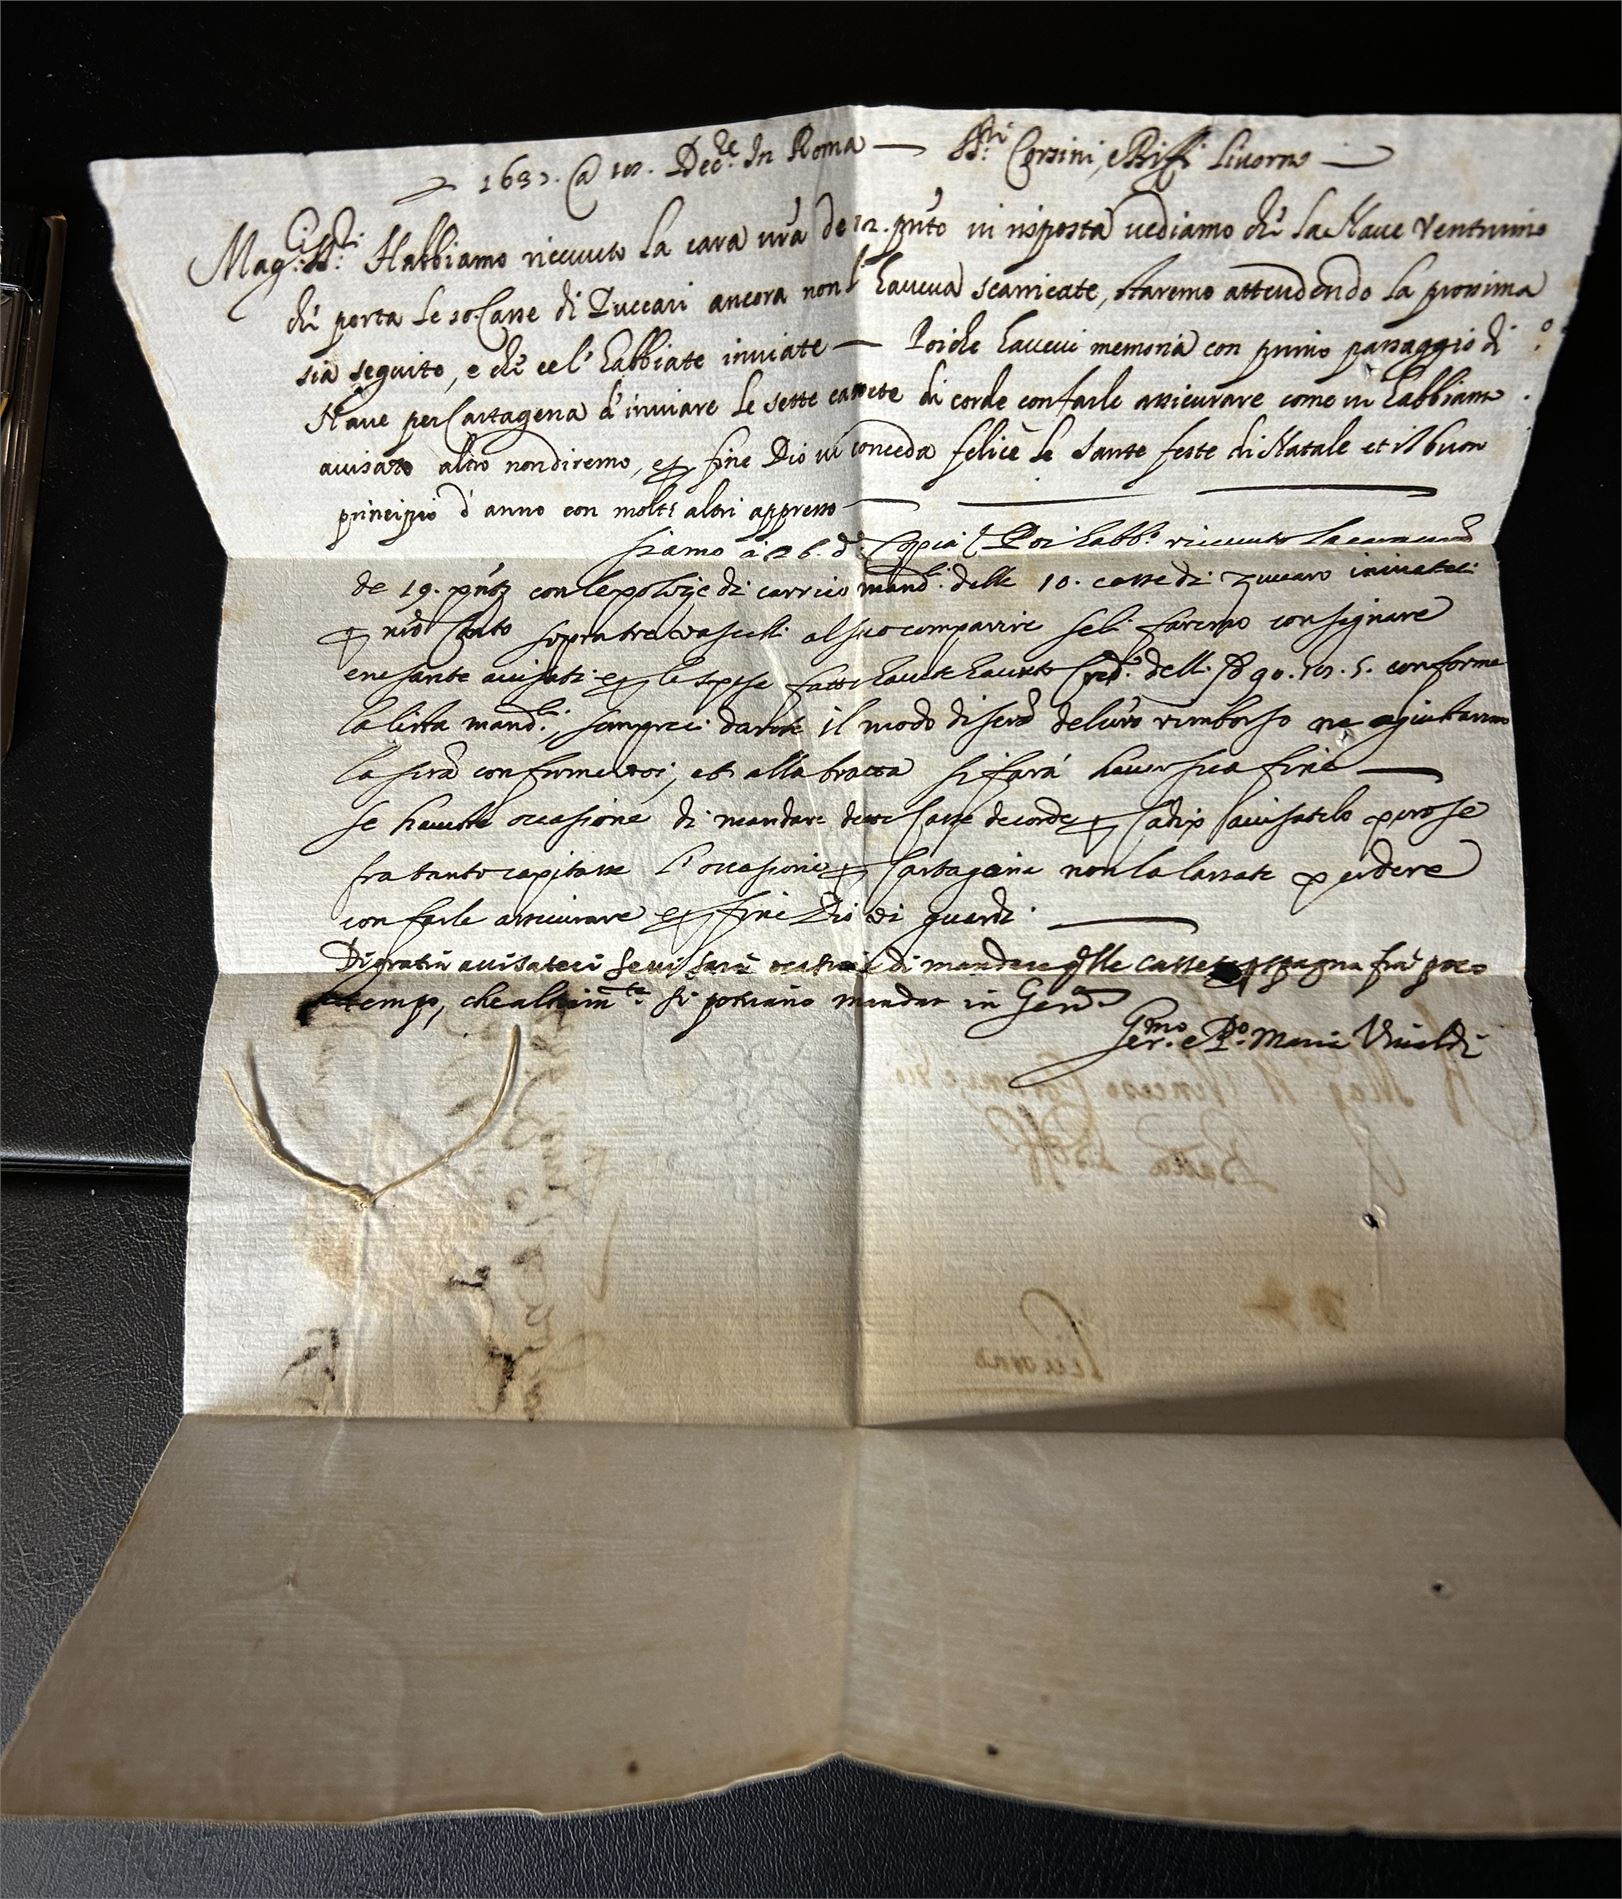 163 @ Dec.re In Roma — SS.ri Corsini, e Biffi Livorno —
Mag.ci SS.ri Habbiamo riceuuto la cara vrã de 12. pñto in risposta uediamo chè la Naue Venturino
chè porta le 10. Casse di Zuccari ancora non l'haueua scarricate, staremo attendendo la prossima
sia seguito, e chè ce l'habbiate inuiate — Poiche haueui memoria con primo passaggio di
Naue per Cartagena d'inuiare le sette cassete di corde con farle assicurare come ui habbiamo
auisato altro non diremo, e per fine Dio ui conceda felicè le sante feste di Natale et il buon
principio d'anno con molti altri appresso —
siamo a 26. d.o Copia Poi habb.o riceuuto la cara
de 19. pñte con le polize di carrico mand. delle 10. casse di zuccaro inuiateci
per nr̃o Conto sopra tre vascelli al suo comparire seli faremo consignare
e ne sarete auisati e per le spese fatte hauete hauuto Cred.o delli 90. 5. conforme
la lista mand., sempre darete il modo di del vr̃o rimborso ne agiustaremo
la conforme voi, et alla tratta si farà hauer sua fine —
se hauete occasione di mandare dette Casse de corde per Cadix auisatelo pero se
fra tanto capitasse l'occasione per Cartagena non la lassate perdere
con farle assicurare e per fine Dio vi guardi. —
Di gratia auisateci se ui sarà ocasione di mandare q̃lle cassete per spagna frà poco
tempo, che altrim.te si potriano mandar in Gen.a
Ger.mo e P.o Maria Vivaldi
Mag. Corsini e
Batta Biffi
Liuorno